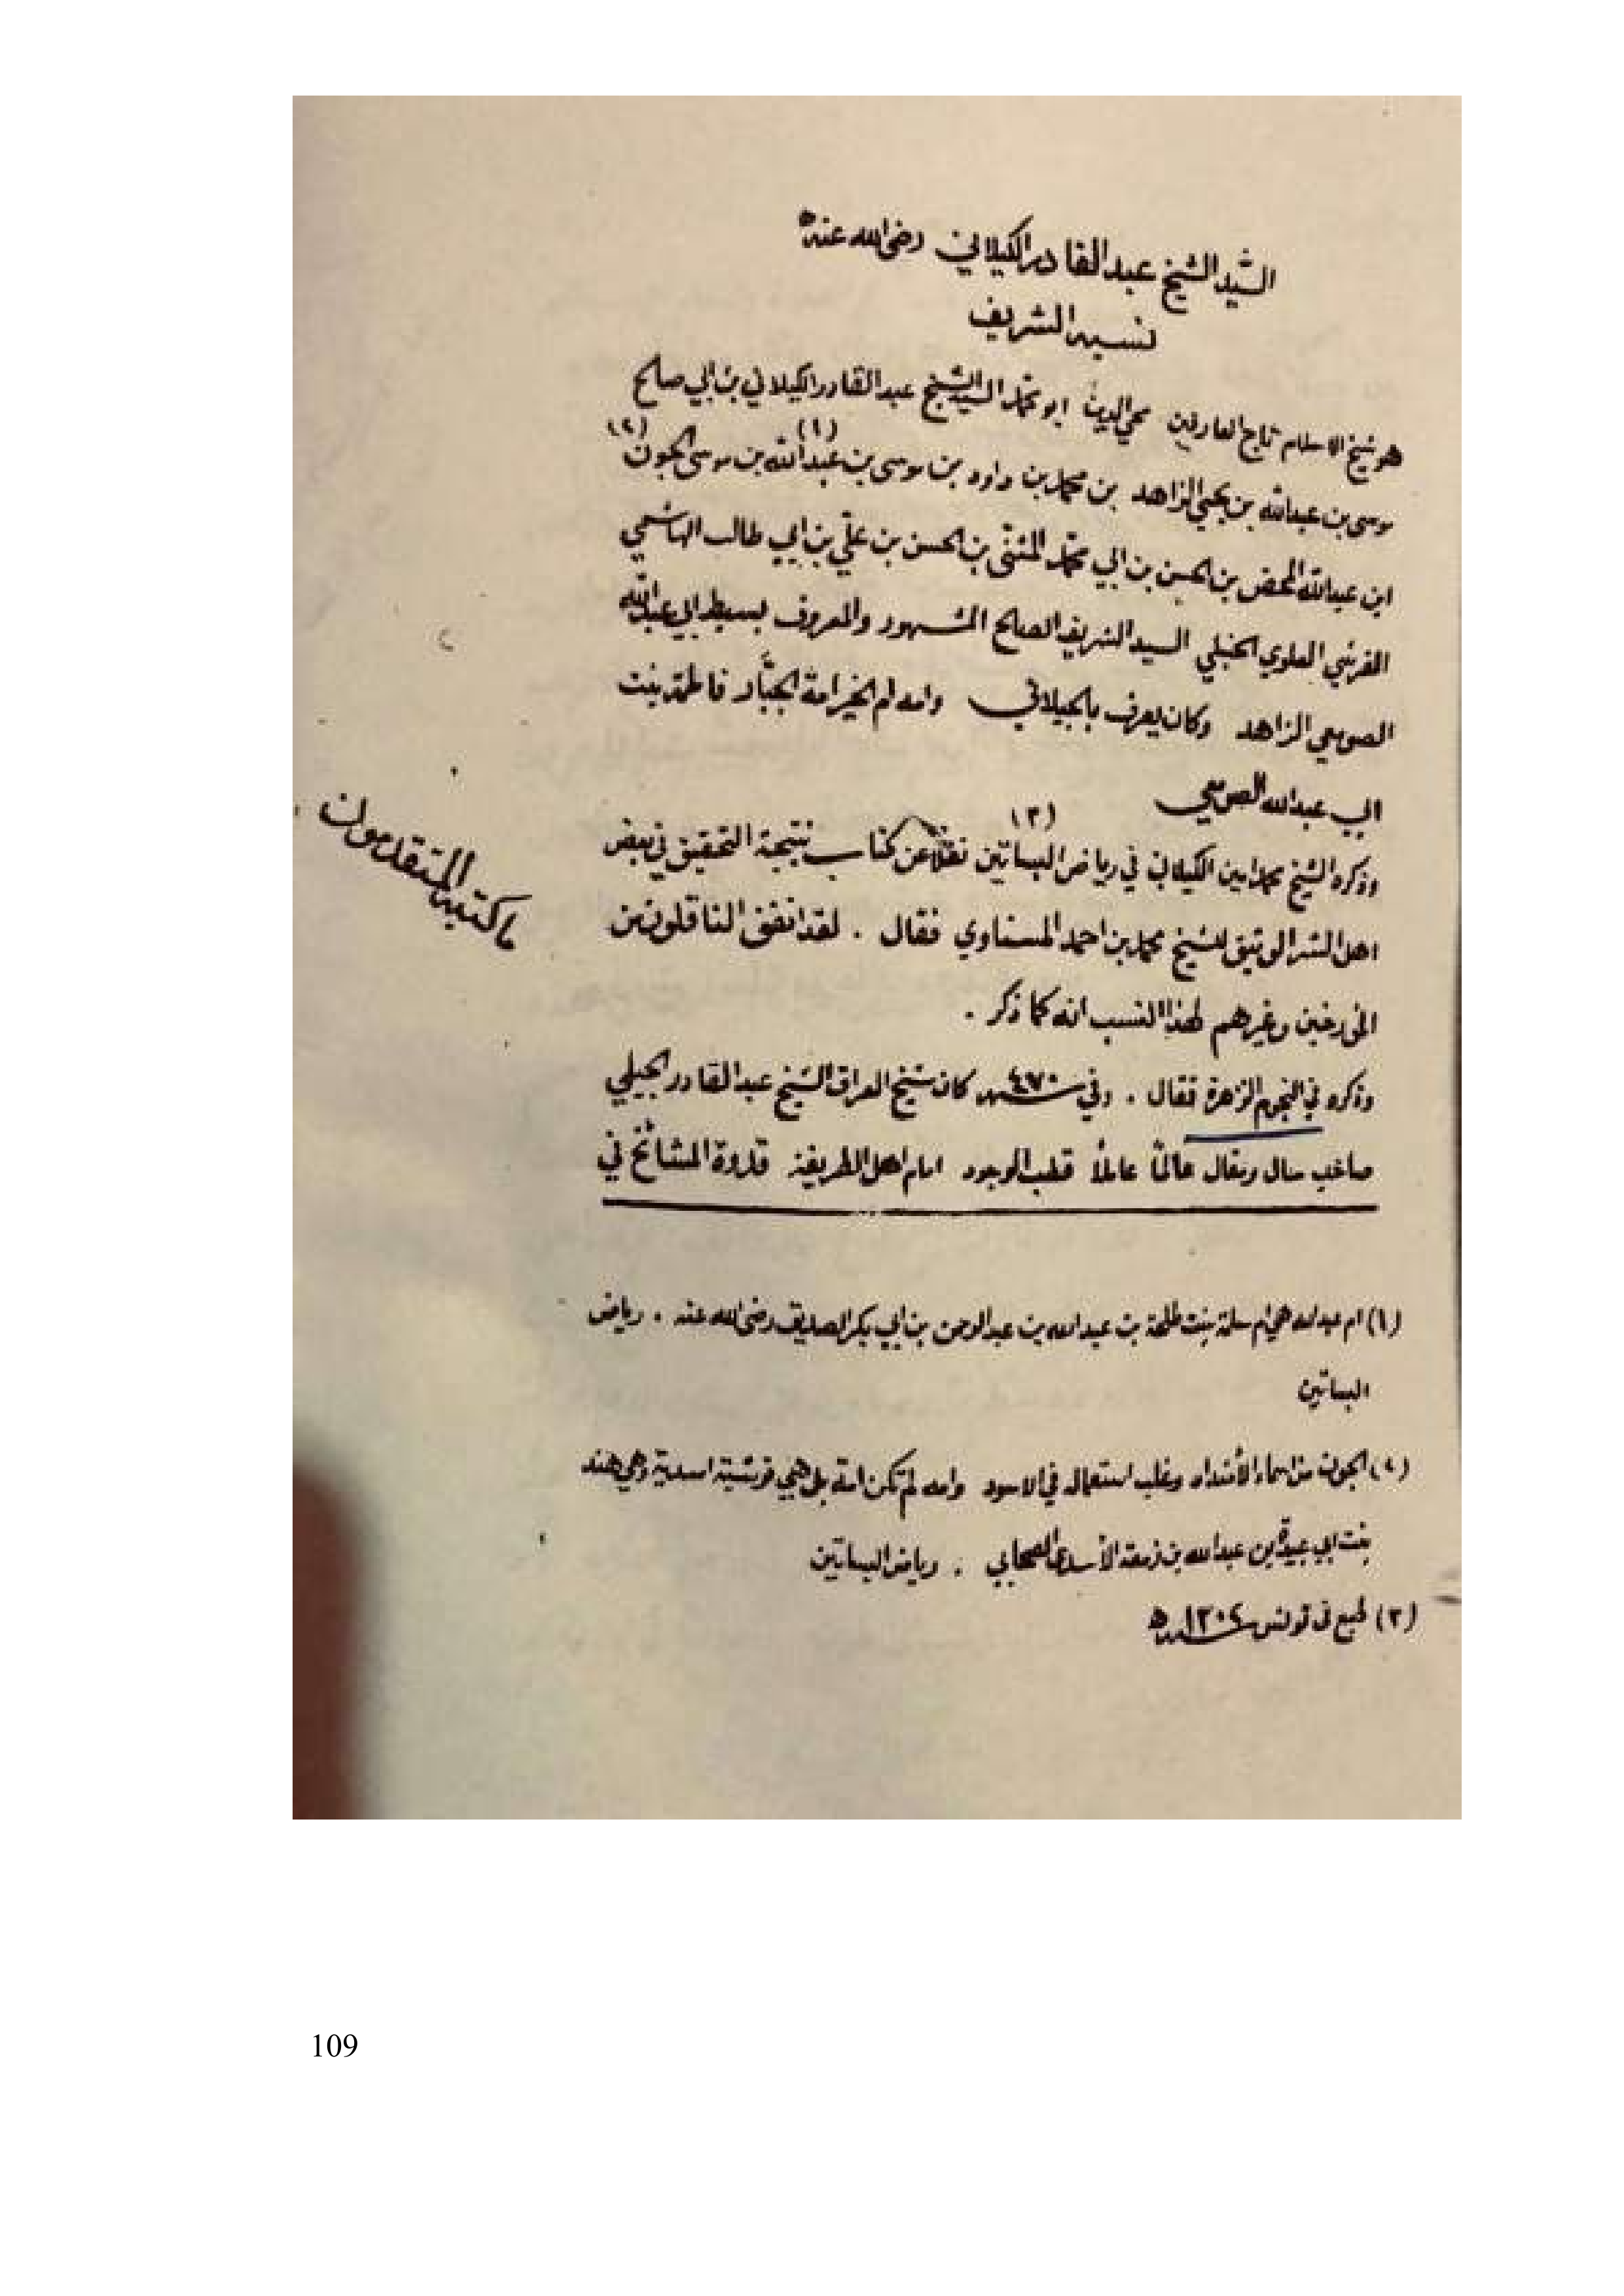 السّيد الشيخ عبد القادر الكيلاني رضي الله عنه
نسبه الشريف
هو شيخ الاسلام تاج العارفين محي الدين ابو محمّد السيد الشيخ عبد القادر الكيلاني بن ابي صالح
موسى بن عبدالله بن يحيى الزاهد بن محمد بن داود بن موسى بن عبدالله (١) بن موسى الجون (٢)
ابن عبدالله المحض بن الحسن بن ابي محمّد المثنى بن الحسن بن علّي بن ابي طالب الهاشمي
القرشي العلوي الحنبلي السيد الشريف الصالح المشهور والمعروف بسبط ابي عبدالله
الصومعي الزاهد وكان يعرف بالجيلاني وامه ام الخير امة الجبّار فاطمة بنت
ابي عبدالله الصومعي
وذكره الشيخ محمد امين الكيلاني في رياض البساتين (٣) نقلاً عن كتاب نتيجة التحقيق في بعض
اهل الشرف الوثيق للشيخ محمد بن احمد المسناوي فقال . لقد اتفق الناقلون من
المؤرخين وغيرهم لهذا النسب انه كما ذكر .
وذكره في النجوم الزهرة فقال . وفي سنة ٤٧٠ كان شيخ العراق الشيخ عبد القادر الجيلي
صاحب حال ومقال عالمّا عاملاً قطب الوجود امام اهل الطريقة قدوة المشائخ في
ما كتبه المتقدمون
(١) ام عبدالله هي ام سلمة بنت طلحة بن عبدالله بن عبدالرحمن بن ابي بكر الصديق رضي الله عنه . رياض
البساتين
(٢) الجون من اسماء الأضداد وغلب استعماله في الاسود وامه لم تكن امة بل هي قرشية اسدية وهي هند
بنت ابي عبيدة بن عبدالله بن زمعة الأسدي الصحابي . رياض البساتين
(٣) طبع في تونس سنة ١٣٠٤ هـ
109